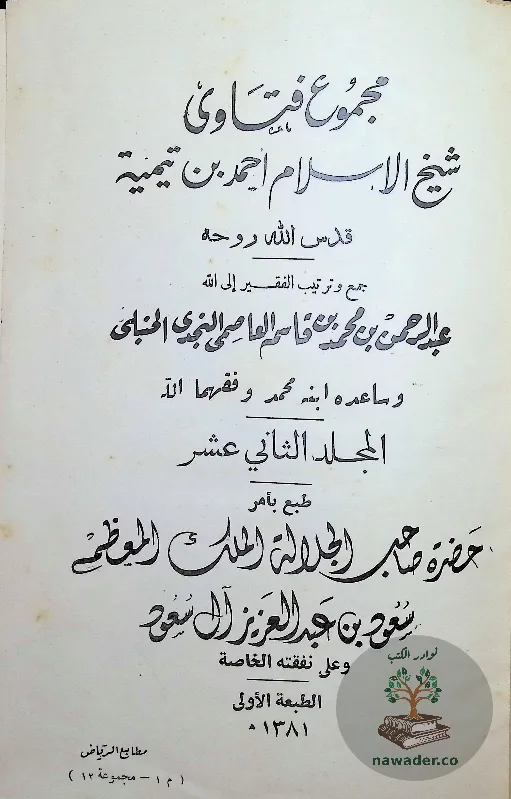 مجموع فتاوى
شيخ الاسلام أحمد بن تيمية
قدس الله روحه
جمع وترتيب الفقير إلى الله
عبد الرحمن بن محمد بن قاسم العاصمي النجدي الحنبلي
وساعده ابنه محمد وفقهما الله
المجلد الثاني عشر
طبع بأمر
حضرة صاحب الجلالة الملك المعظم
سعود بن عبد العزيز آل سعود
وعلى نفقته الخاصة
الطبعة الأولى
١٣٨١ هـ
مطابع الرياض
( م ١ - مجموعة ١٢ )
نوادر الكتب
nawader.co